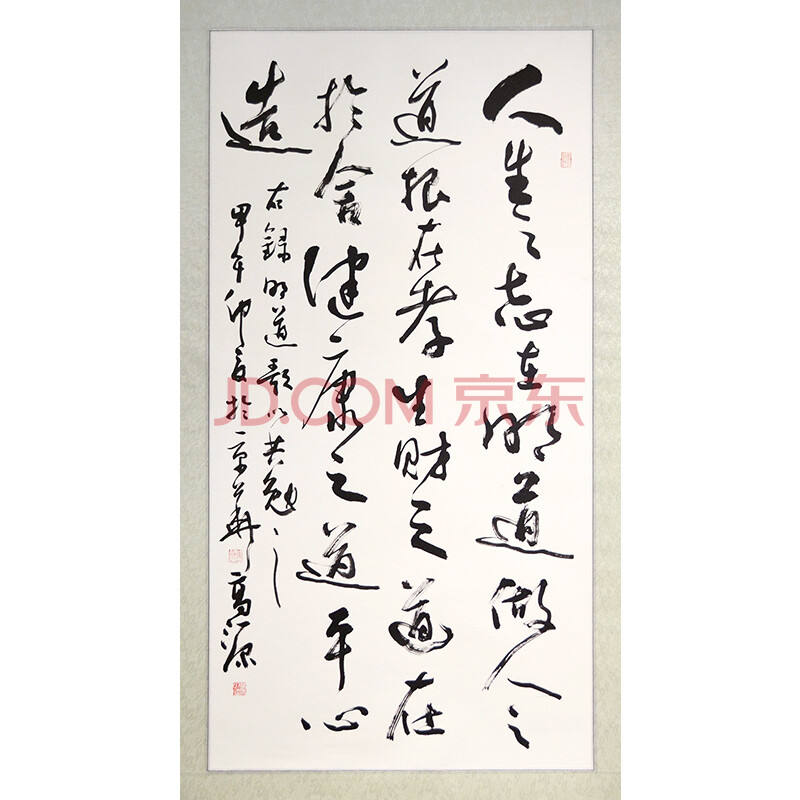 人生之志在明道做人之
道根在孝生财之道在
於舍健康之道平心
造
右録明道歌以共勉之
甲午仲夏於京華高源
JD.COM 京东